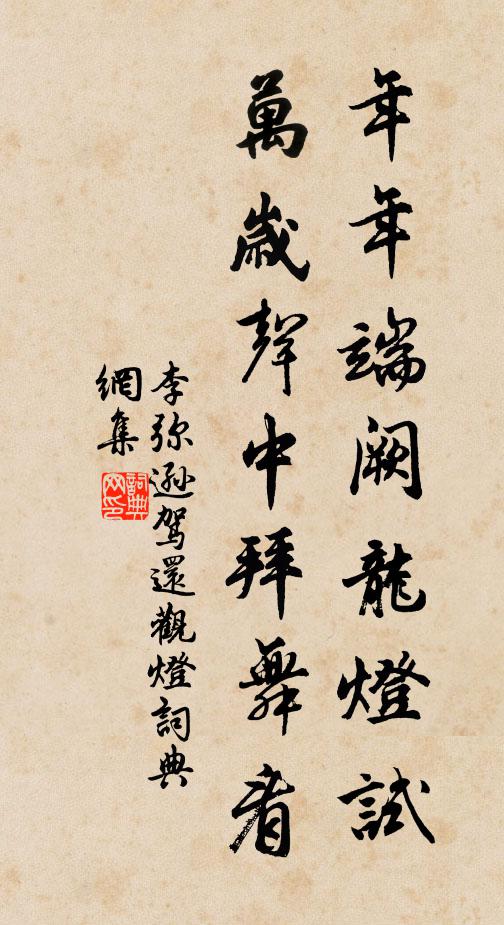 年年端阙龍燈試
萬歲聲中拜舞看
李弥遜駕還觀燈詞典
網集
詞典
网印